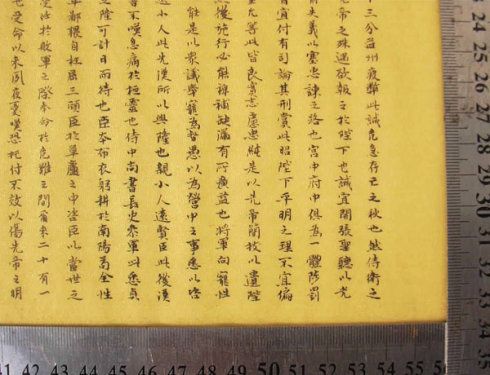 三分益州疲弊此誠危急存亡之秋也然侍衛之
先帝之殊遇欲報之於陛下也誠宜開張聖聽以光
失義以塞忠諫之路也宮中府中俱為一體陟罰
宜付有司論其刑賞以昭陛下平明之理不宜偏
允等此皆良實志慮忠純是以先帝簡拔以遺陛
後施行必能裨補缺漏有所廣益也將軍向寵性
能是以眾議舉寵為督愚以為營中之事悉以咨
小人此先漢所以興隆也親小人遠賢臣此後漢
不嘆息痛於桓靈也侍中尚書長史參軍此悉貞
之隆可計日而待也臣本布衣躬耕於南陽苟全性
卑鄙猥自枉屈三顧臣於草廬之中諮臣以當世之
任於敗軍之際奉命於危難之間爾來二十有一
也受命以來夙夜憂嘆恐托付不效以傷先帝之明
24 25 26 27 28 29 30 31 32 33 34 35
41 42 43 44 45 46 47 48 49 50 51 52 53 54 55 56